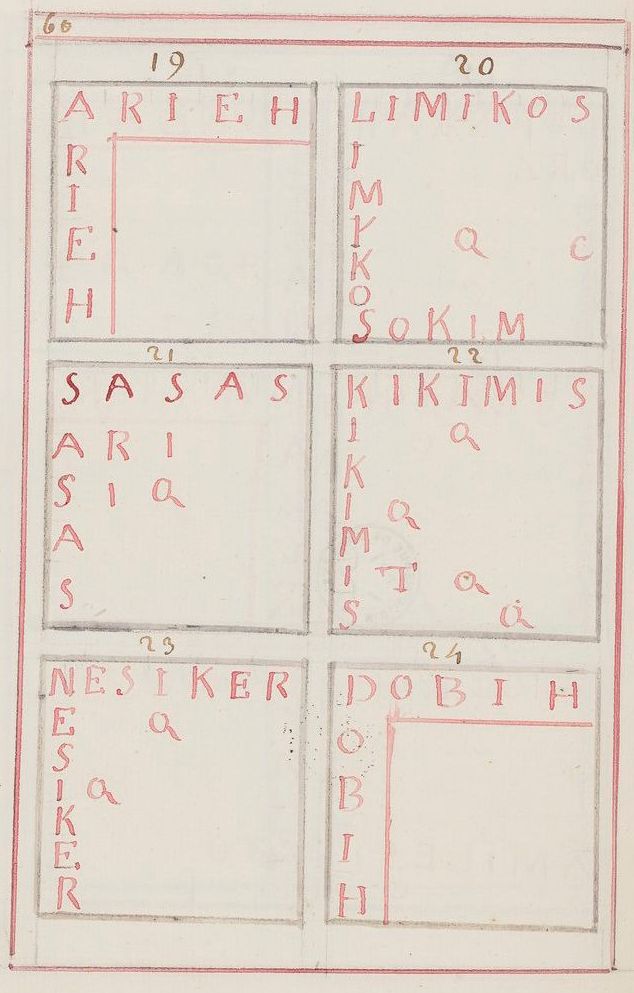 60
19
A R I E H
R
I
E
H
20
L I M I K O S
I
M
Y
K Q C
K
O
S O K I M
21
S A S A S
A R I
S I Q
A
S
22
K I K I M I S
I Q
K
I Q
M
I T Q
S Q
23
N E S I K E R
E Q
S
I Q
K
E
R
24
D O B I H
O
B
I
H